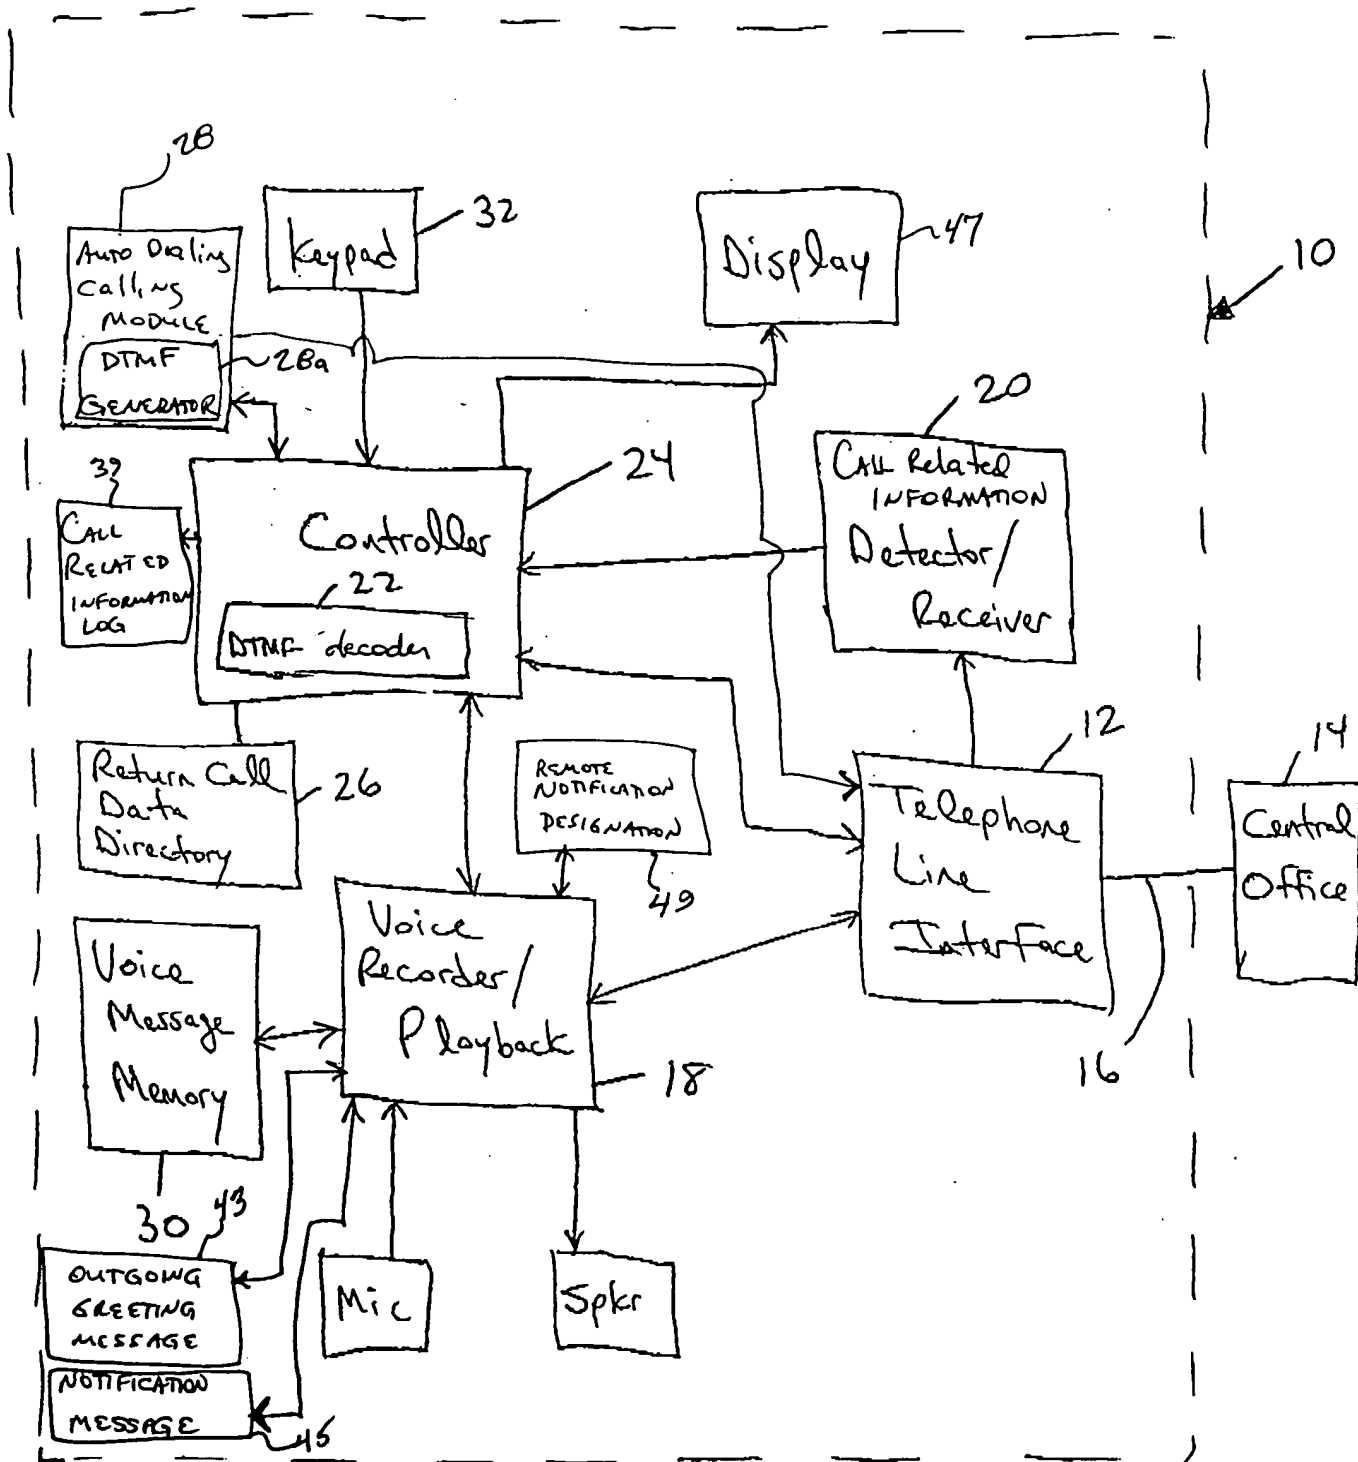 28
Auto Dialing
Calling
MODULE
DTMF
GENERATOR
28a
Keypad
32
Display
47
10
20
CALL Related
INFORMATION
Detector/
Receiver
39
CALL
RELATED
INFORMATION
LOG
Controller
24
22
DTMF decoder
Return Call
Data
Directory
26
REMOTE
NOTIFICATION
DESIGNATION
49
12
Telephone
Line
Interface
14
Central
Office
16
Voice
Message
Memory
30
Voice
Recorder/
Playback
18
43
OUTGOING
GREETING
MESSAGE
Mic
Spkr
NOTIFICATION
MESSAGE
45